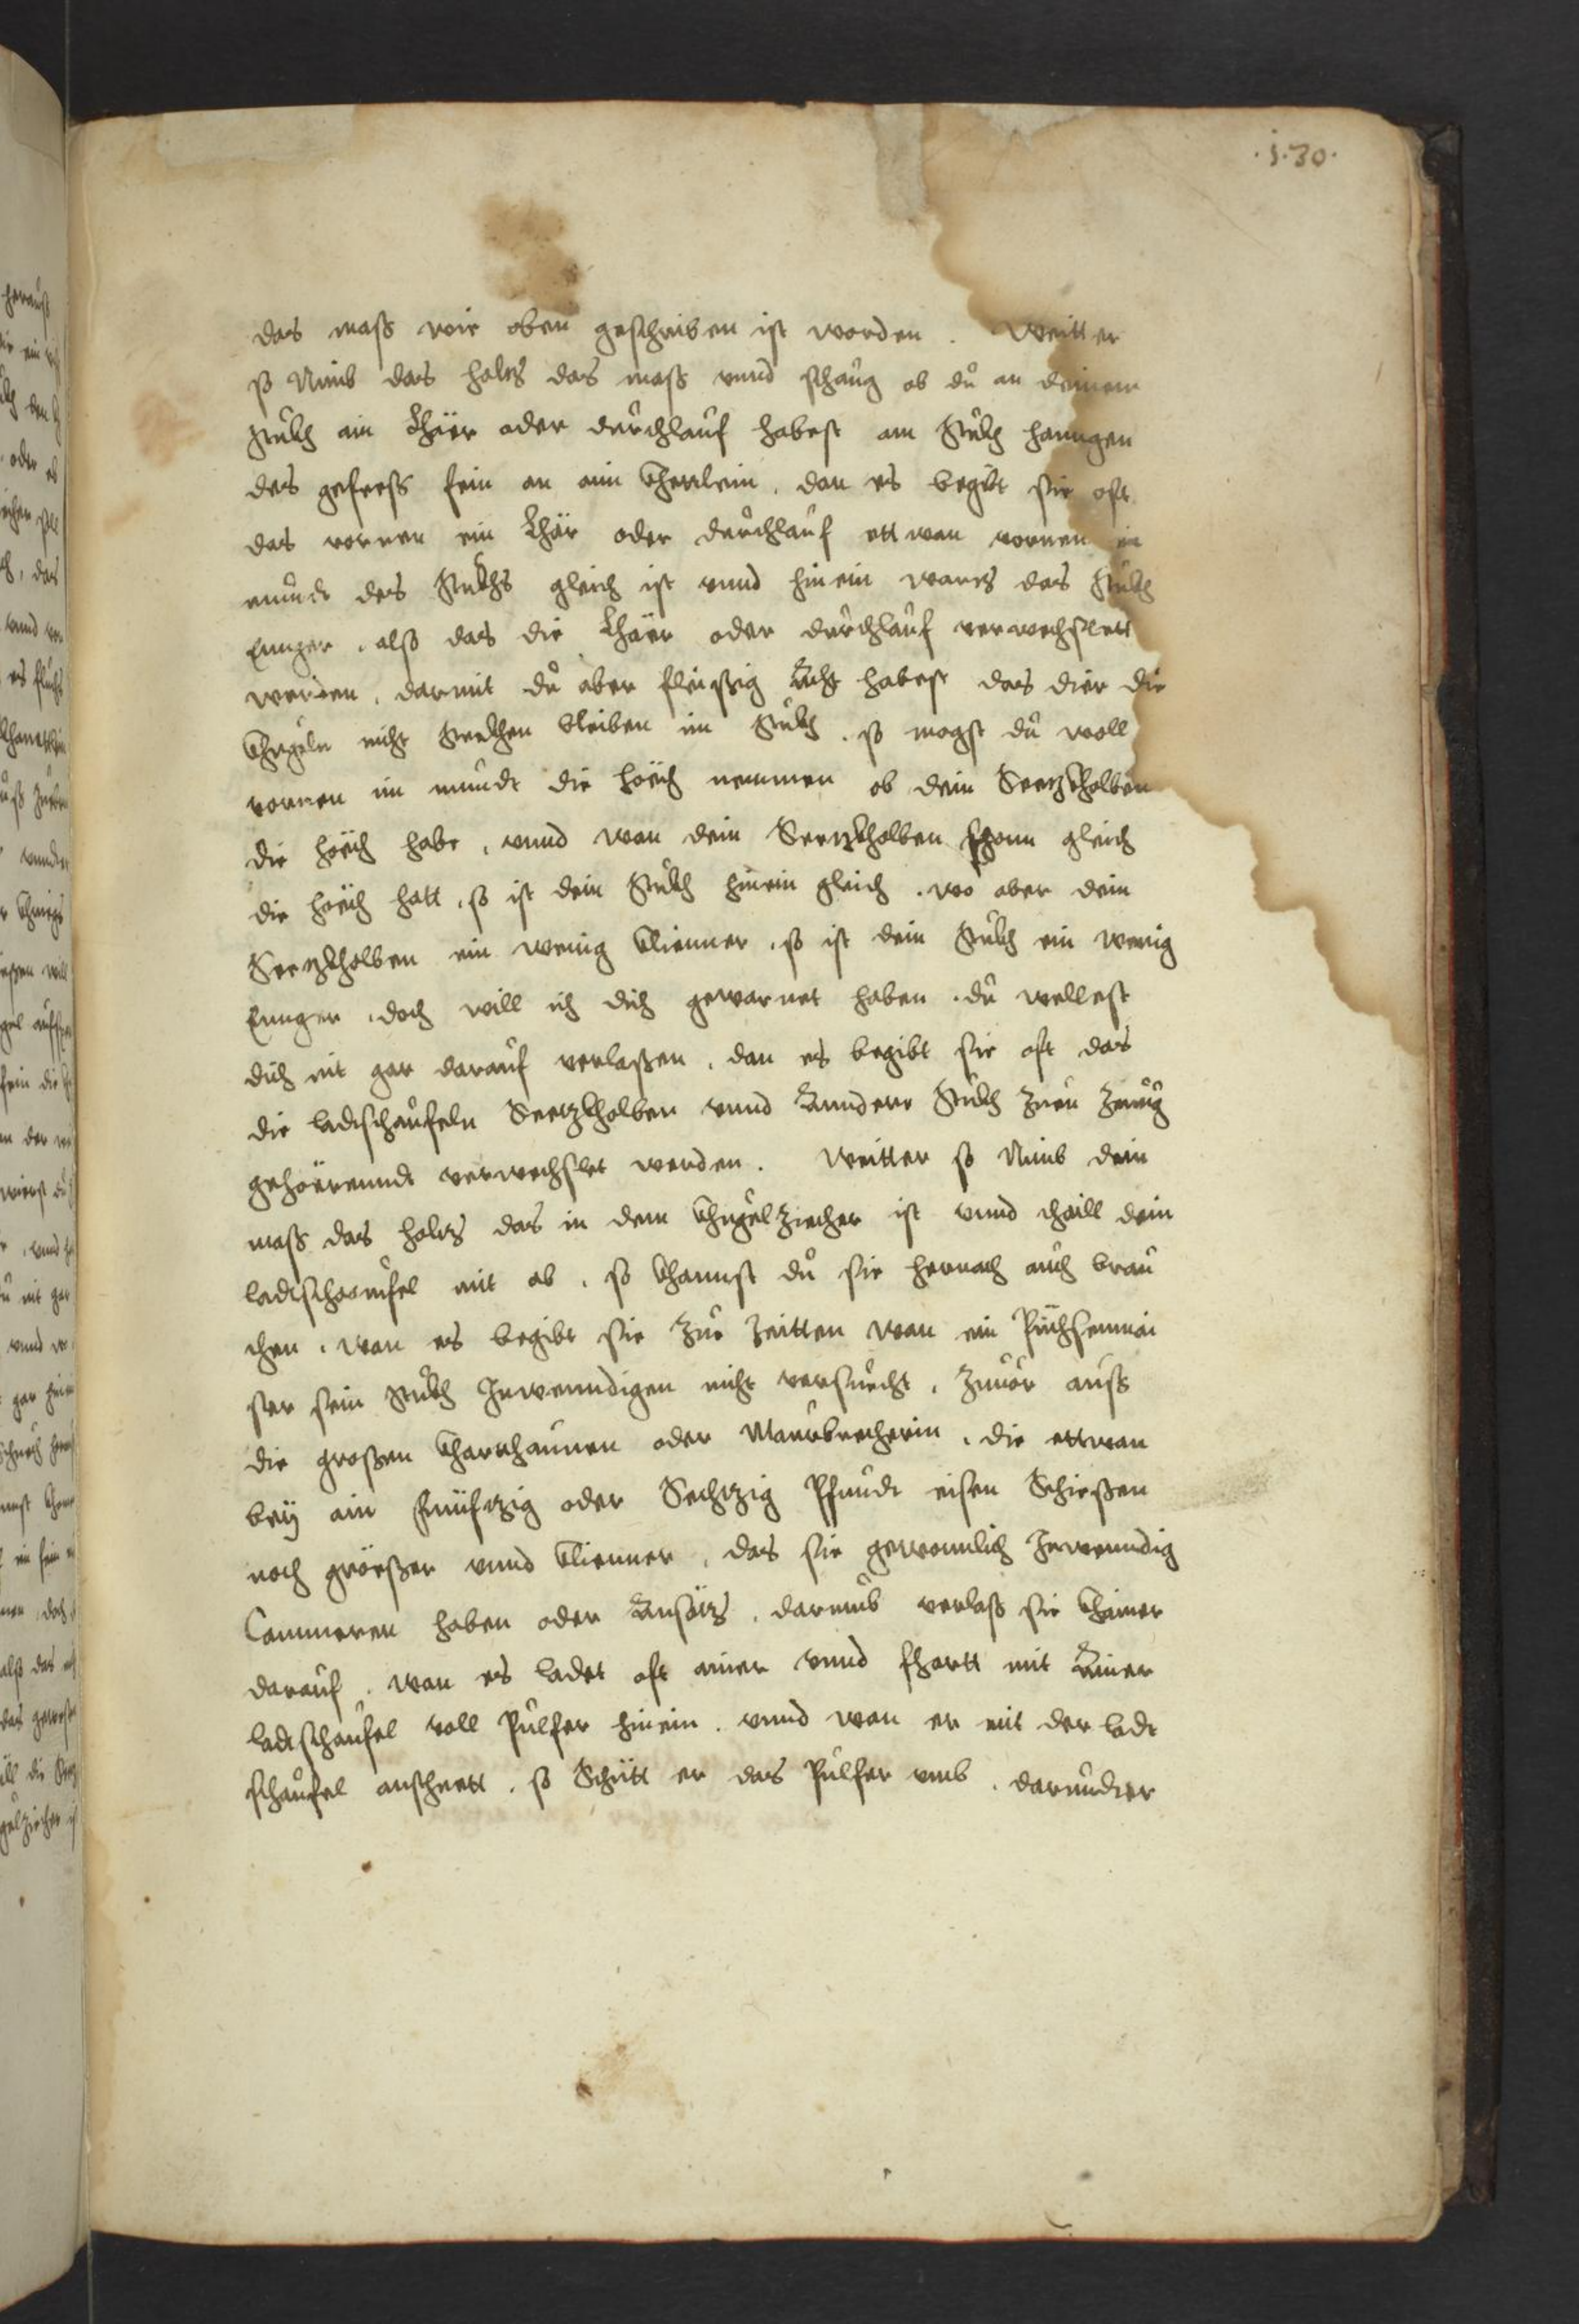 .i.30.
das mass wie oben geschriben ist worden . Weitter
so Nimb das holtz das mass vnnd schaug ob du an deinem
Stukh ain khäer oder durchlauf habest am Stukh hanngen
des gefress sein an aim thenlein, dan es begibt sie oft
das vornen ein khär oder durchlauf ettwan vornen im
mundt des Stukhs gleich ist vnnd hinein wartz das Stukh
Ennger, also das die khäer oder durchlauf verwechslett
werden, darmit du aber fleissig Acht habest das dier die
khugeln nicht Steckhen bleiben im Stukh . so magst du woll
vornen im mundt die höch nemmen ob dein Seetzkholben
die höch habe, vnnd wan dein Seetzkholben schonn gleich
die höch hatt, so ist dein Stukh hinein gleich . wo aber dein
Seetzkholben ein wenig klienner, so ist dein Stukh ein wenig
Ennger, doch will ich dich gewarnet haben . du wellest
dich nit gar darauf verlassen, dan es begibt sie oft das
die ladtschaufeln Seetzkholben vnnd Anndere Stukh Zum Zeuig
gehoërenndt verwechslet werden . Weitter so Nimb dein
mass das holtz das in dem khugelziecher ist vnnd thaill dein
ladtschaufel mit ab, so khannst du sie hernach auch brau
chen . wan es begibt sie Zur Zeitten wan ein Püchsenmai
ster sein Stukh Inwenndigen nicht versuecht, Zuuor auss
die grossen kharthaunen oder Maurbrecherin, die ettwan
bey ain funfzig oder Sechtzig Pfundt eisen Schiessen
noch grösser vnnd klienner, das sie gewonnlich Inwenndig
Cammeren haben oder Ansätz, darumb verlass sie khainer
darauf . wan es ladet oft ainer vnnd fhartt mit Ainer
ladtschaufel voll Pulfer hinein . vnnd wan er mit der ladt
schaufel ansthett . so Schütt er das Pulfer vmb . darunder